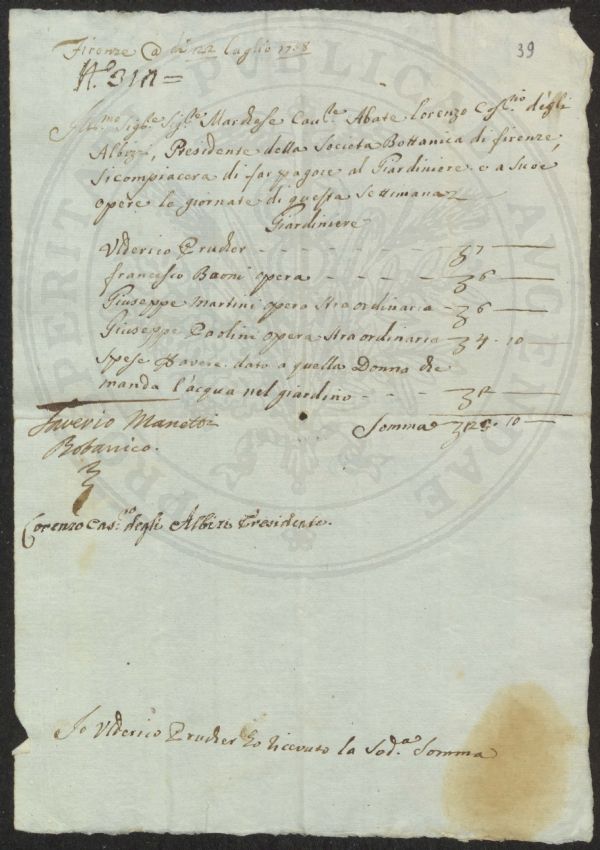 Firenze @ di 22 luglio 17 8
39
N.º 31
Ill.mo Sig.re Sig.re Marchese Cav.re Abate Lorenzo Cas.no degli
Albizi, Presidente della Societa Bottanica di firenze,
si compiacera di far pagare al Giardiniere e a sue
opere le giornate di questa Settimana
Giardiniere
Ulderico Prucher - - - - - 7
francesco Baoni opera - - - 6
Giuseppe Martini opera straordinaria - 6
Giuseppe Paolini opera straordinaria - 4 - 10
Spese d'avere dato a quella Donna che
manda l'acqua nel giardino - - - 2
Saverio Manetti
Botanico.
Somma 25 - 10
Lorenzo Cas.no degli Albizi Presidente.
Io Ulderico Prucher ho ricevuto la Sod.a Somma
PROSPERITATI PUBLICAE AUGENDAE